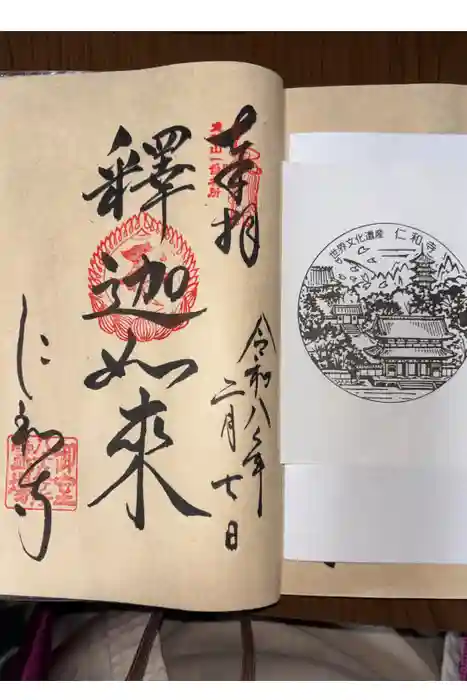 奉拝
令和八年
二月七日
釋迦如来
仁和寺
世界文化遺産 仁和寺